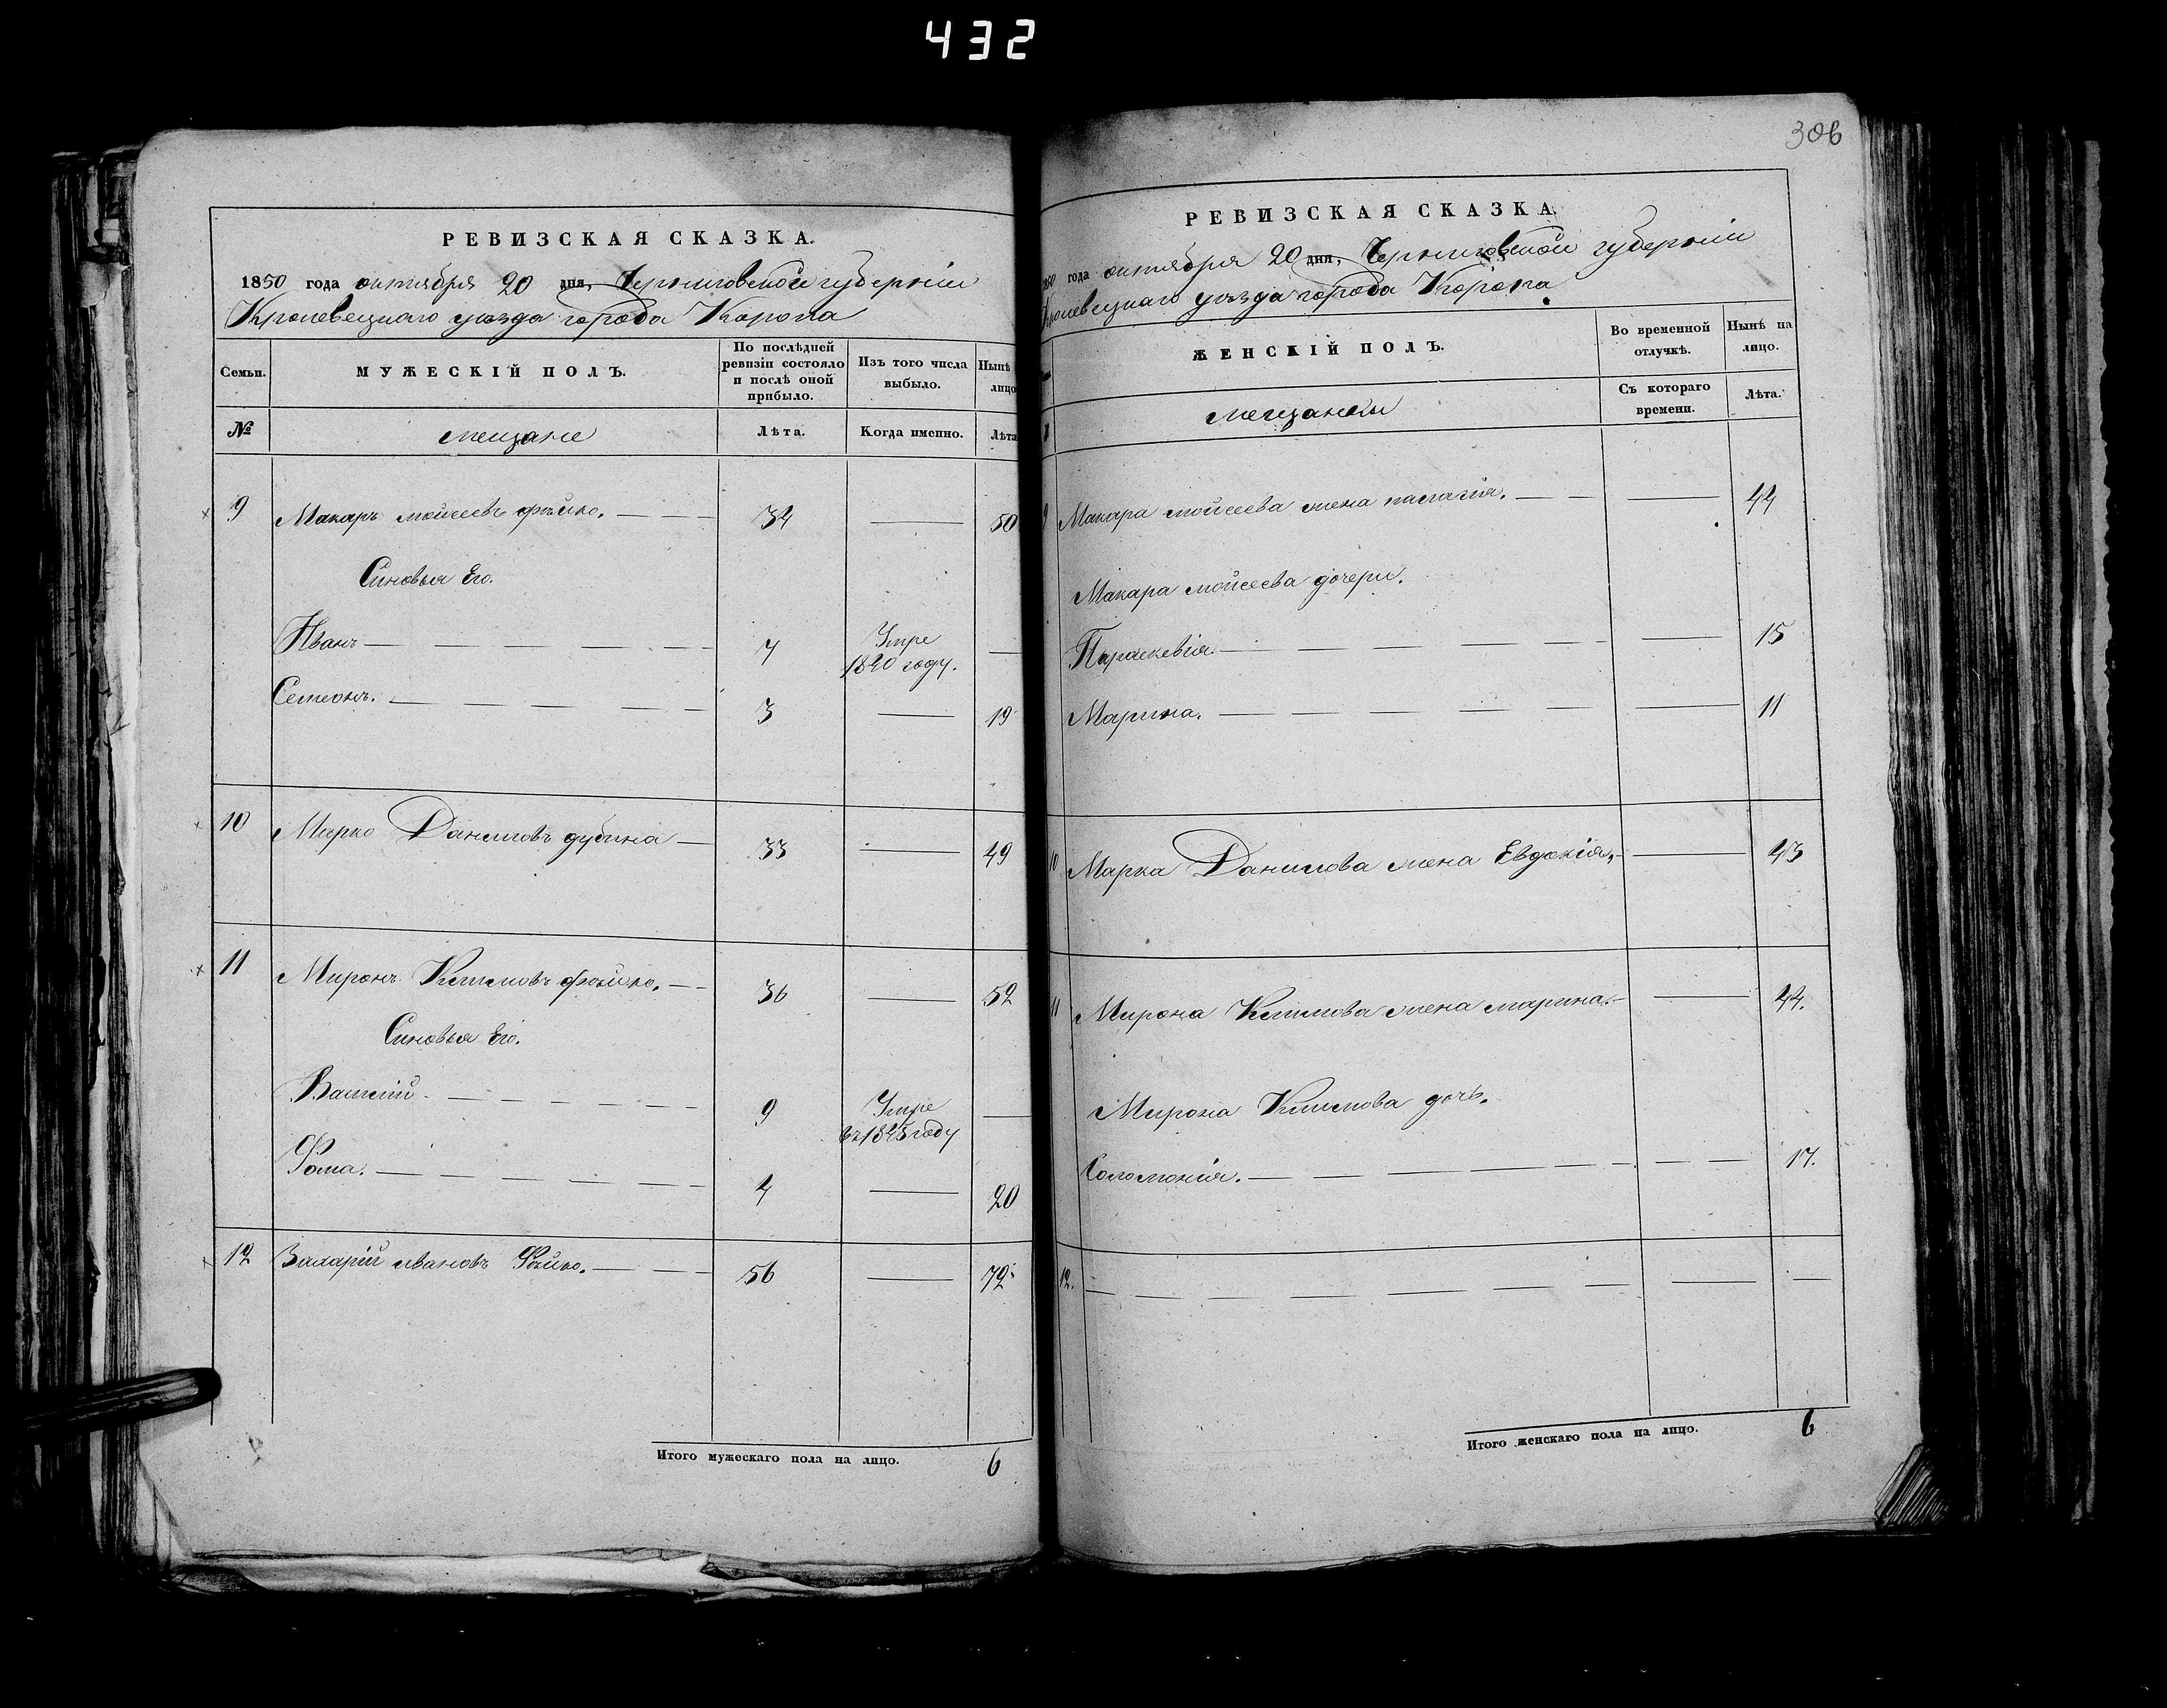 432
306
РЕВИЗСКАЯ СКАЗКА.
1850 года октября 20 дня, Черниговской губерніи
Кролевецкаго уѣзда города Коропа
Семьи.
МУЖЕСКІЙ ПОЛЪ.
По послѣдней
ревизіи состояло
и послѣ оной
прибыло.
Изъ того числа
выбыло.
Нынѣ
лицо
№
мещане
Лѣта.
Когда именно.
Лѣта
9 Макаръ мойсеевъ 34 — 50
Синовья Его.
Иванъ 7 Умре
году.
Семеонъ. 3 — 19
10 Марко Даниловъ дубина 33 — 49
11 Миронъ Климовъ 36 — 52
Синовья Его.
Василій 9 Умре —
году
Фома. 4 — 20
12 Захарій ивановъ 56 — 72
Итого мужескаго пола на лицо. 6
РЕВИЗСКАЯ СКАЗКА.
года октября 20 дня, Черниговской губерніи
Кролевецкаго уѣзда города Коропа
ЖЕНСКІЙ ПОЛЪ.
Во временной
отлучкѣ.
Нынѣ на
лицо.
мещанки
Съ котораго
времени.
Лѣта.
9 Макара мойсеева жена пелагія. — 44
Макара мойсеева дочери.
Параскевія. — 15
Марина. — 11
10 Марка Данилова жена Евдокія. — 43
11 Мирона Климова жена марина. — 44.
Мирона Климова дочь.
Соломонія. — 17.
12. — — —
Итого женскаго пола на лицо. 6